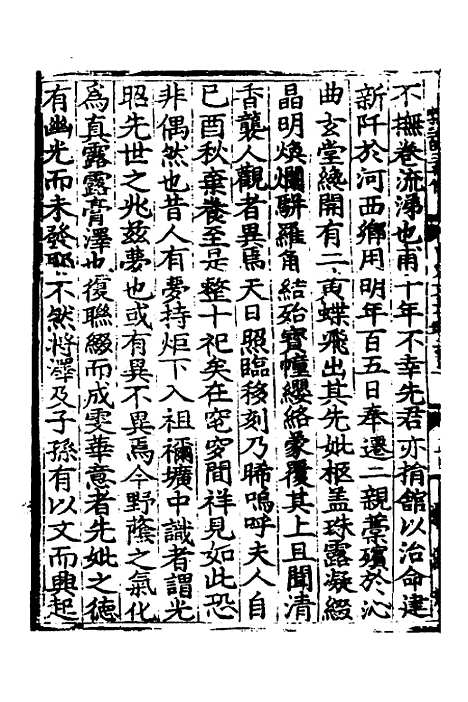 不撫卷流涕也甫十年不幸先君亦捐舘以治命建
新阡於河西鄉用明年百五日奉遷二親藁殯於沁
曲玄堂纔開有二黄蝶飛出其先妣柩盖珠露凝綴
晶明煥爛騈羅角結殆寳幢纓絡蒙覆其上且聞清
香襲人觀者異焉天日照臨移刻乃晞嗚呼夫人自
已酉秋棄養至是整十祀矣在窀穸間祥見如此恐
非偶然也昔人有夢持炬下入祖禰壙中識者謂光
昭先世之兆兹夢也或有異不異焉今野蔭之氣化
為真露露膏澤也復聯綴而成雯華意者先妣之德
有幽光而未發耶不然将澤及子孫有以文而興起